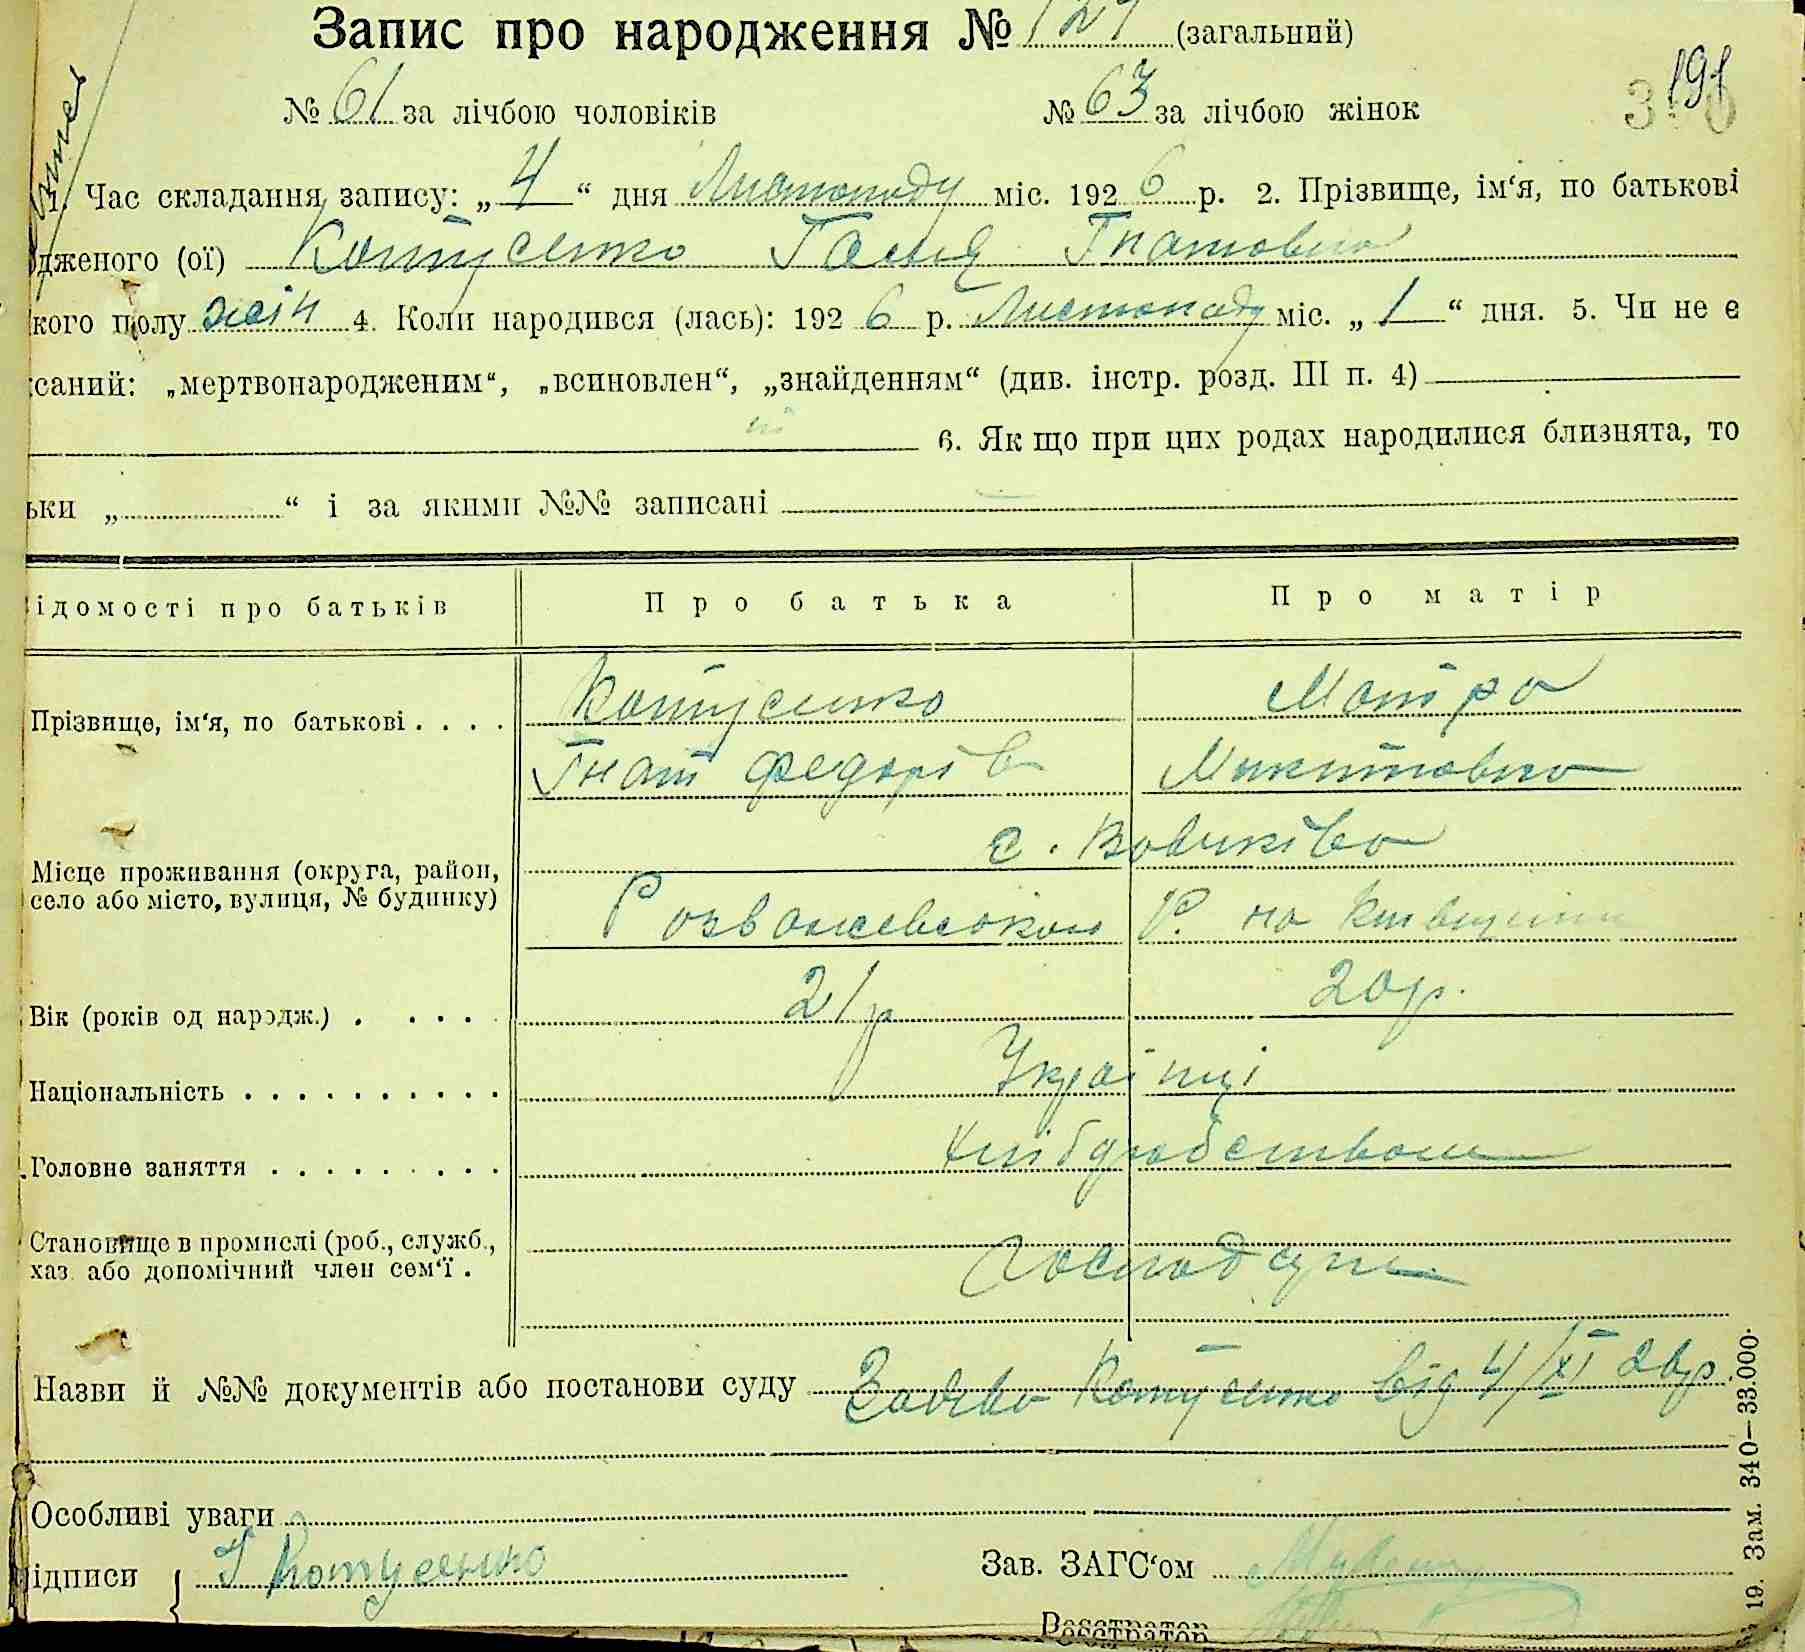 Запис про народження № 124 (загальний)
№ 61 за лічбою чоловіків № 63 за лічбою жінок 191
1. Час складання запису: „ 4 “ дня Листопаду міс. 192 6 р. 2. Прізвище, ім‘я, по батькові
дженого (ої) Котусенко Ганя Гнатовна
кого полу жін 4. Коли народився (лась): 192 6 р. Листопаду міс. „ 1 “ дня. 5. Чи не є
саний: „мертвонародженим“, „всиновлен“, „знайденням“ (див. інстр. розд. III п. 4)
6. Як що при цих родах народилися близнята, то
ьки „ “ і за якими №№ записані
ідомості про батьків Про батька Про матір
Прізвище, ім‘я, по батькові . . . . Котусенко Мотря
Гнат Федорів Микитовна
с.
Місце проживання (округа, район,
село або місто, вулиця, № будинку) Розважевсьkого Р. на Київщині
Вік (років од народж.) . . . . . 21 р 20 р.
Національність . . . . . . . . . . Українці
Головне заняття . . . . . . . . . Хліборобством
Становище в промислі (роб., служб.,
хаз. або допомічний член сем‘ї . Господари
Назви й №№ документів або постанови суду Заява Котусенко від 4/XI 26 р.
Особливі уваги
ідписи { Г Котусенко Зав. ЗАГС‘ом
Реєстратор
19. Зам. 340—33.000.